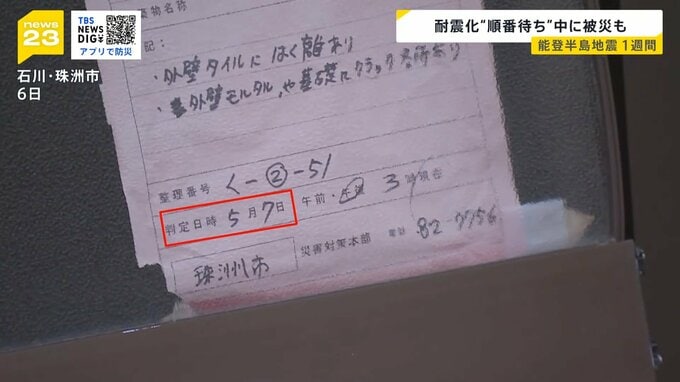 news23
TBS
NEWS
DIG
アプリで防災
耐震化“順番待ち”中に被災も
能登半島地震 1週間
石川・珠洲市
6日
築物名称
記:
・外壁タイルにはく離あり
・外壁モルタル,や基礎にクラック
整理番号 く-②-51
判定日時 5月7日 午前・午後 3時頃
災害対策本部 電話 82-7756
珠洲市